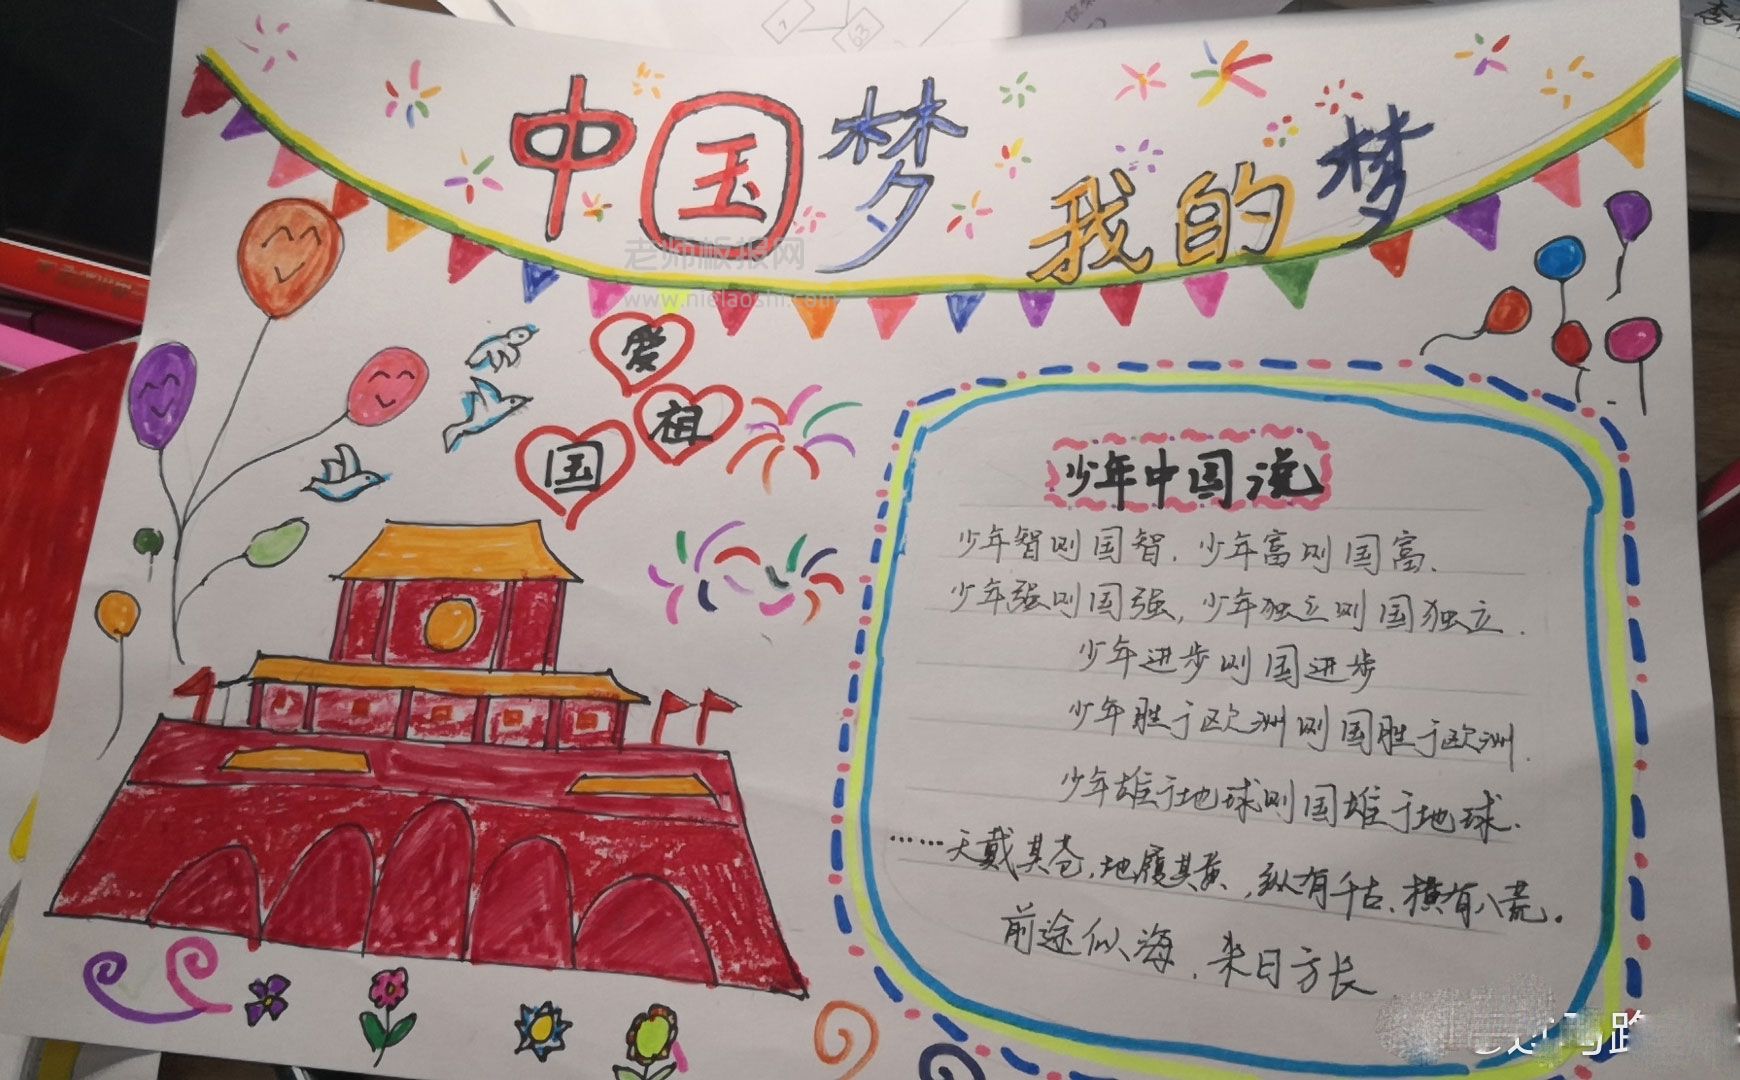 中国梦
我的梦
老师板报网
www.nielaoshi.com
爱
祖
国
少年中国说
少年智则国智，少年富则国富，
少年强则国强，少年独立则国独立．
少年进步则国进步
少年胜于欧洲则国胜于欧洲．
少年雄于地球则国雄于地球．
……天戴其苍，地履其黄，纵有千古，横有八荒。
前途似海，来日方长